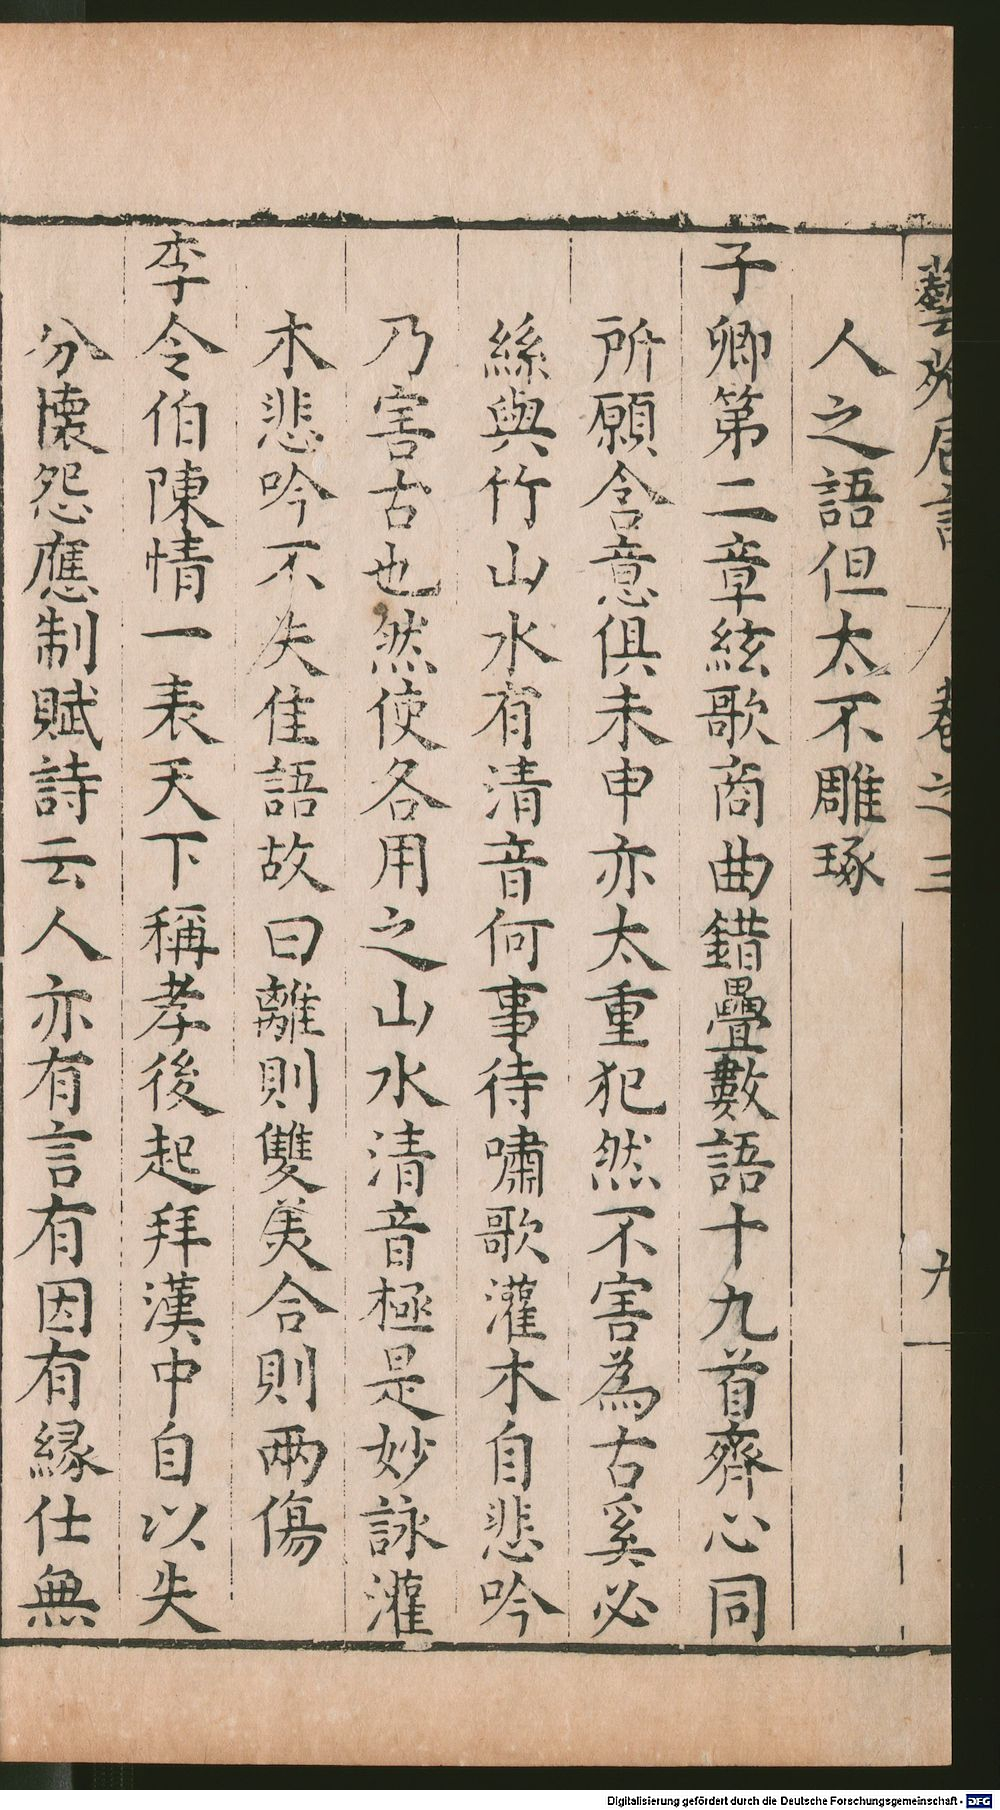 藝苑卮言 卷之三 九
人之語但太不雕琢
子卿第二章絃歌商曲錯疊數語十九首齊心同
所願含意俱未申亦太重犯然不害為古奚必
絲與竹山水有清音何事待嘯歌灌木自悲吟
乃害古也然使各用之山水清音極是妙詠灌
木悲吟不失佳語故曰離則雙美合則兩傷
李令伯陳情一表天下稱孝後起拜漢中自以失
分懷怨應制賦詩云人亦有言有因有緣仕無
Digitalisierung gefördert durch die Deutsche Forschungsgemeinschaft - DFG